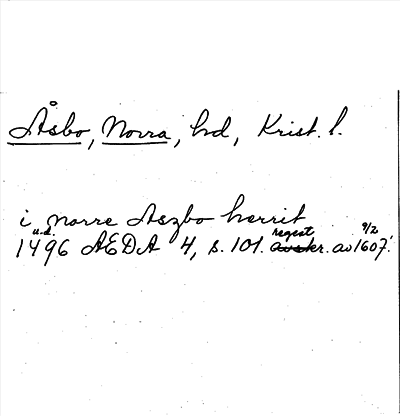 Åsbo, Norra, hd, Krist. l.
i norre Aszbo herrit
u.d. regest 9/2
1496 AEDA 4, s. 101. avskr. av 1607.